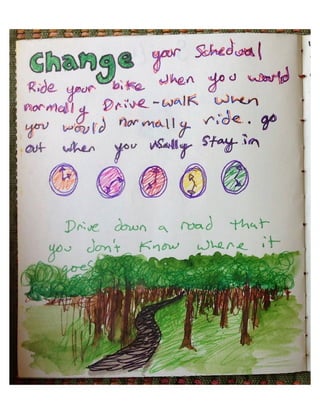 Change your Scheduol
Ride your bike when you would
normally Drive-walk when
you would normally ride. go
out when you usally stay in
Drive down a road that
you don't know where it
goes